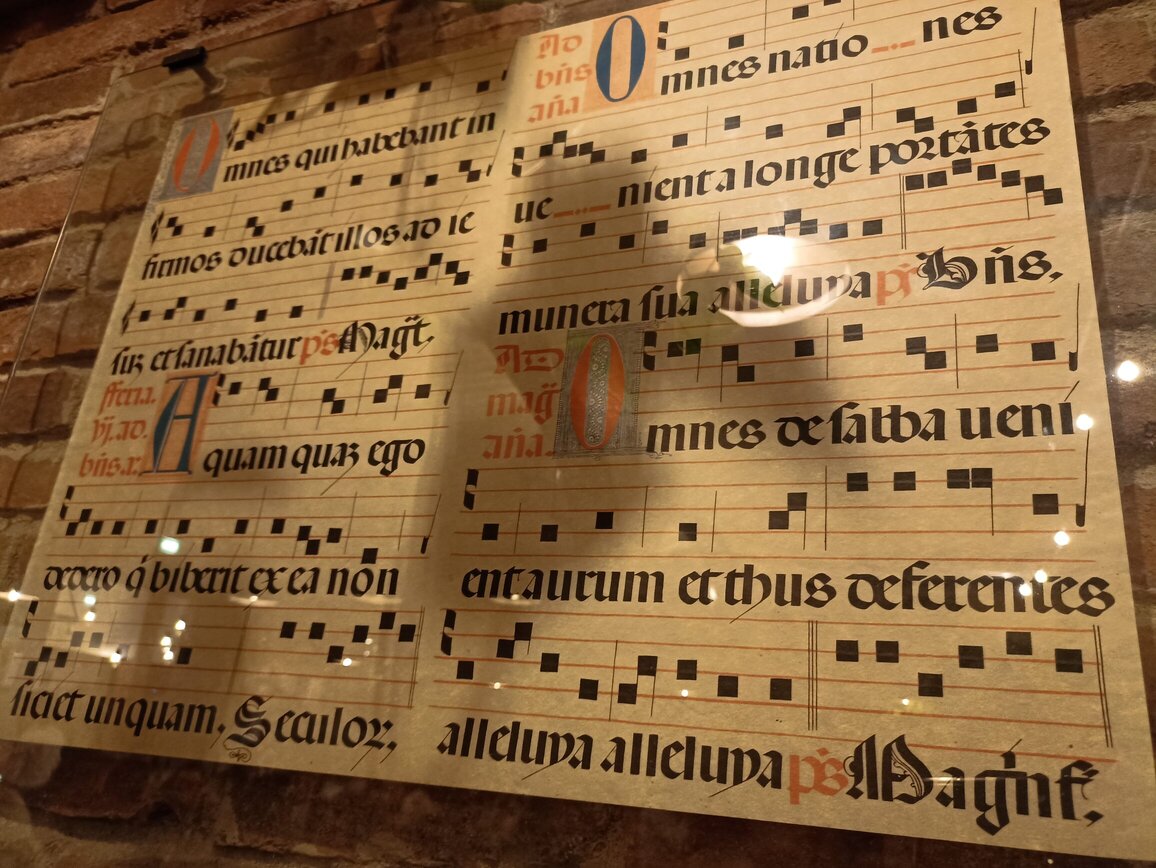 Omnes qui habebant in
firmos ducebāt illos ad ie
suʒ et sanabātur ps Magt̄.
fferia.
vj. ad.
bn̄s a:
Aquam quaʒ ego
dedero q̇ biberit ex ea nōn
siciet unquam. Seculoꝝ,
Ad
bn̄s
an̄a
Omnes natio___nes
ue___nient a longe portātes
munera sua alleluya ps Bn̄s,
Ad
mag̃
an̄a.
Omnes de sabba uenī
ent aurum et thus deferentes
alleluya alleluya ps Magnf.